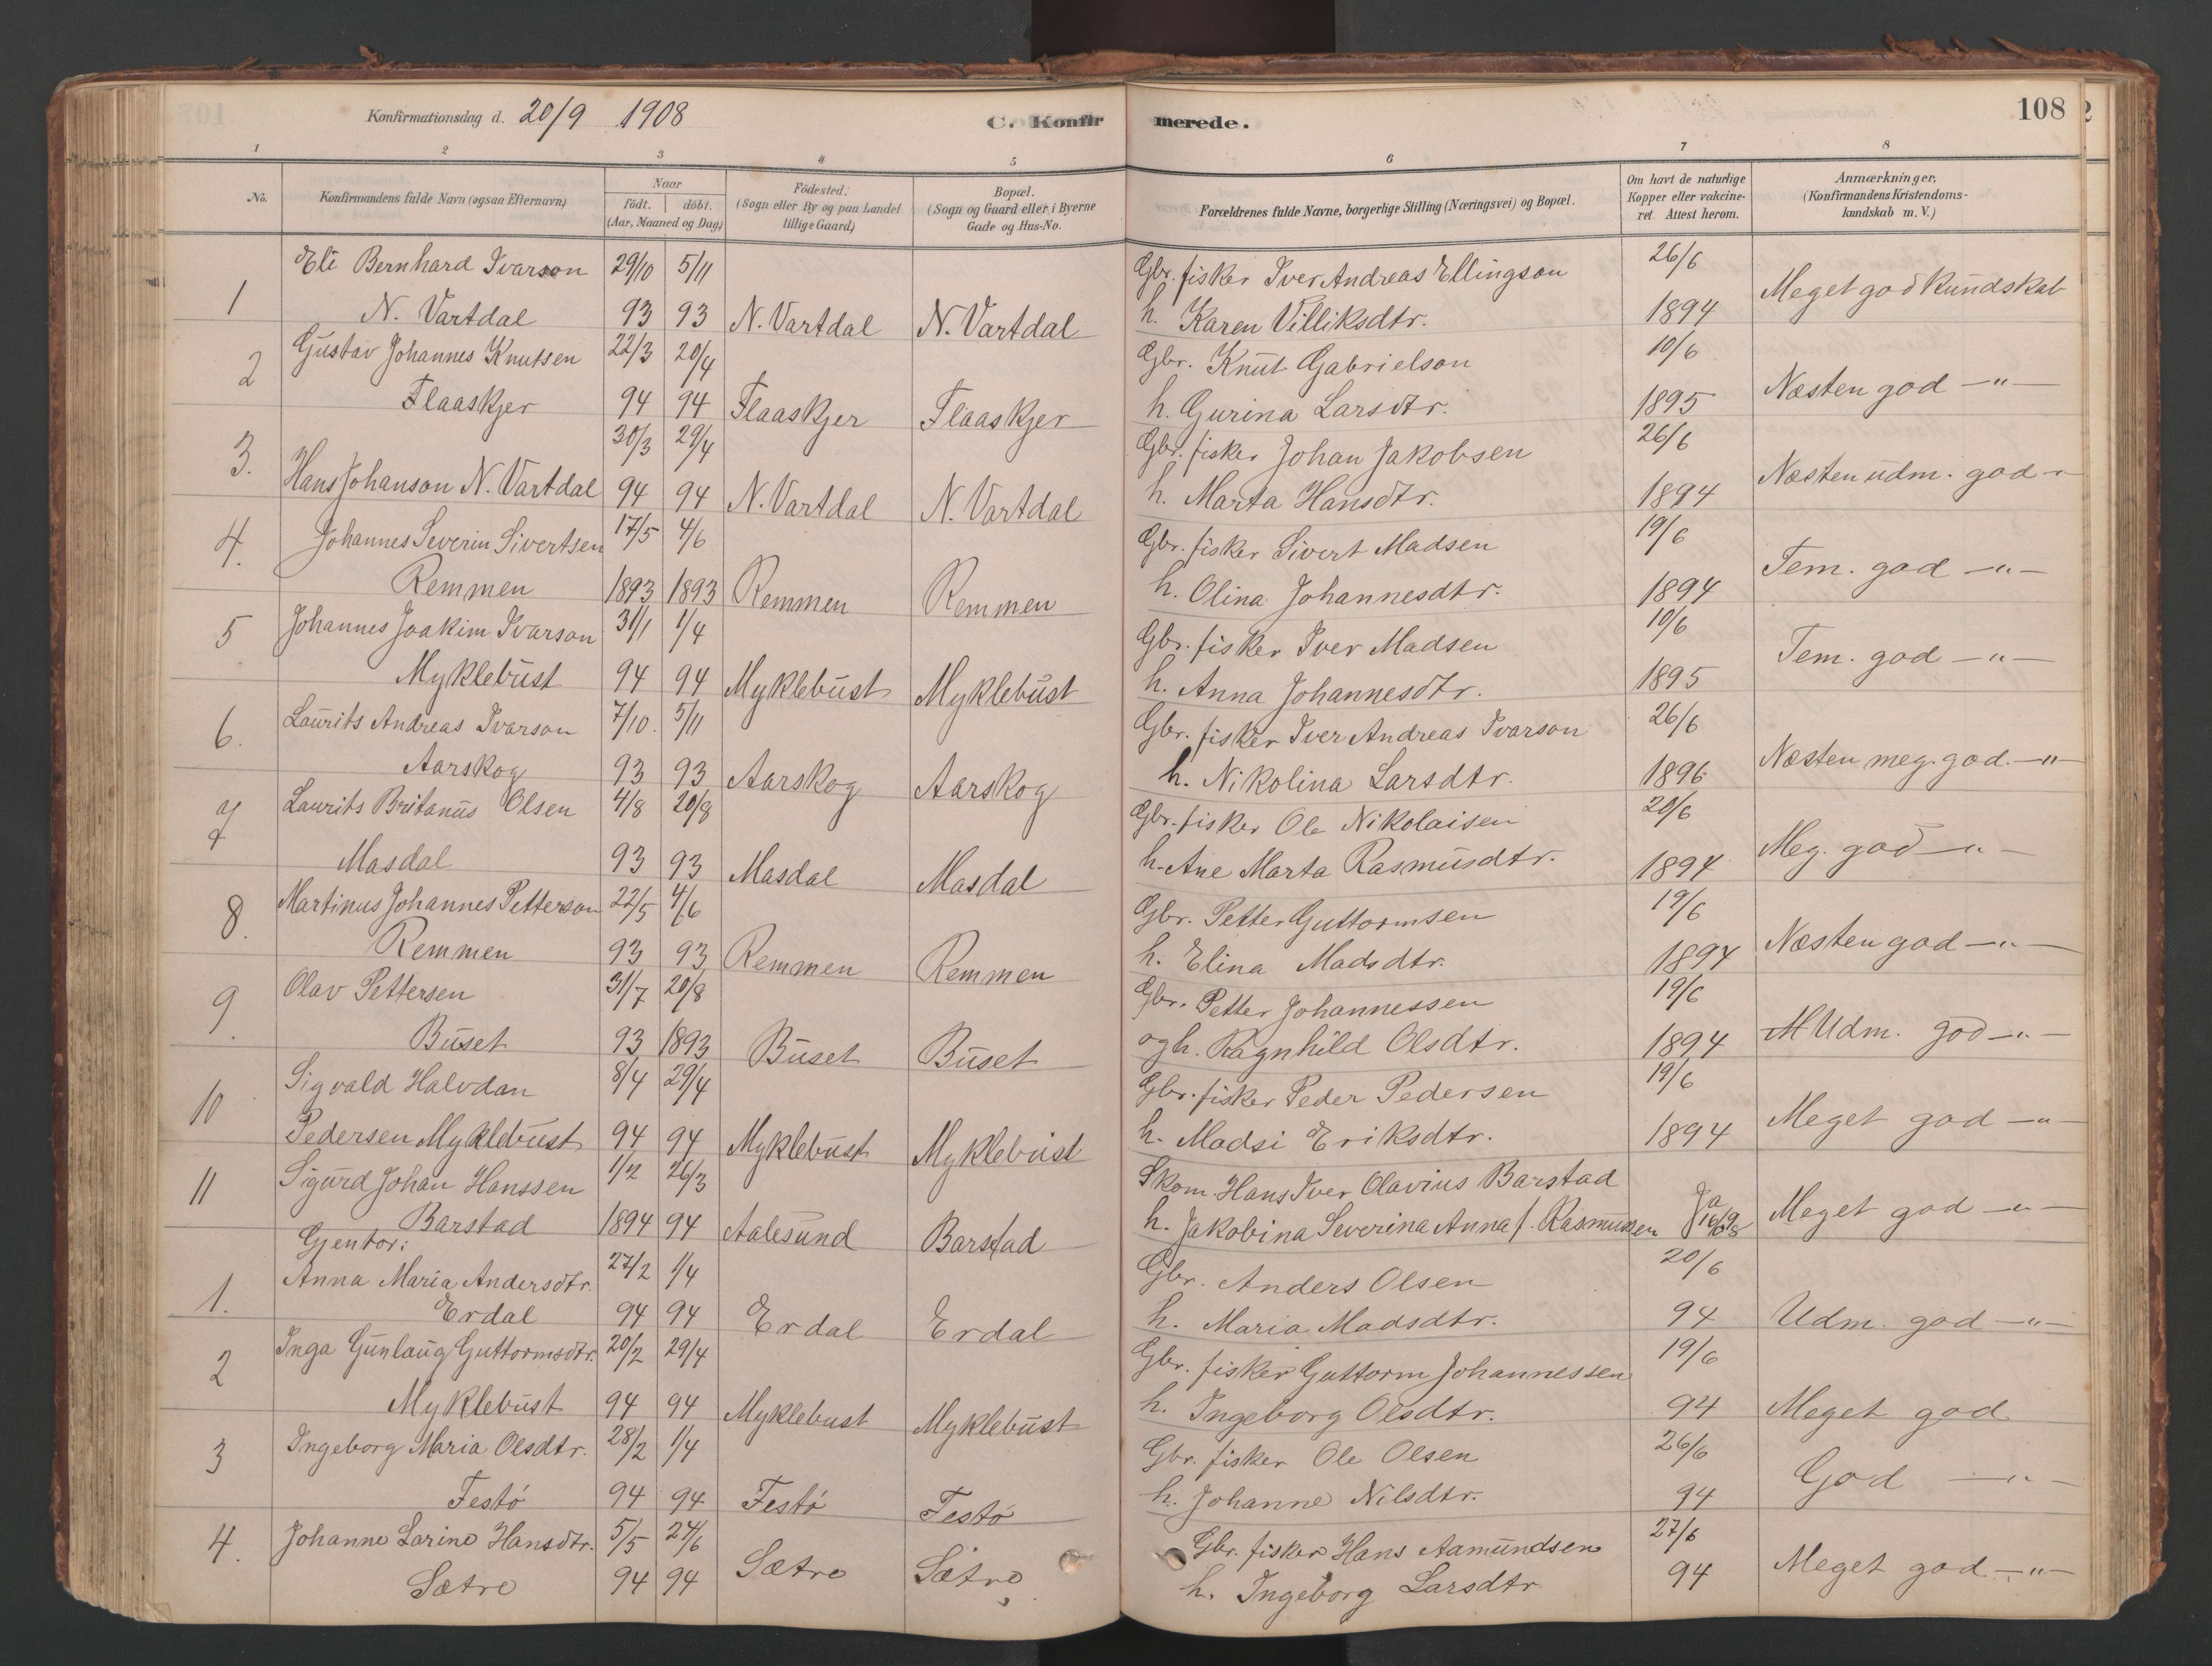 Konfirmationsdag d. 20/9 1908
C. Konfirmerede.
108
1 2 3 4 5 6 7 8
No.
Konfirmandens fulde Navn (ogsaa Efternavn)
Naar
födt. döbt.
(Aar, Maaned og Dag)
Födested.
(Sogn eller By og paa Landet
tillige Gaard)
Bopæl.
(Sogn og Gaard eller i Byerne
Gade og Hus-No.
Forældrenes fulde Navne, borgerlige Stilling (Næringsvei) og Bopæl.
Om havt de naturlige
Kopper eller vakcine-
ret. Attest herom.
Anmærkninger.
(Konfirmandens Kristendoms-
kundskab m. V.)
Eli Bernhard Ivarson 29/10 5/11 Gbr. fisker Iver Andreas Ellingson 26/6
1 N. Vartdal 93 93 N. Vartdal N. Vartdal h. Karen Villiksdtr. 1894 Meget god Kundskab
Gustav Johannes Knutsen 22/3 20/4 Gbr. Knut Gabrielson 10/6
2 Flaaskjer 94 94 Flaaskjer Flaaskjer h. Gurina Larsdtr. 1895 Næsten god -"-
30/3 29/4 Gbr. fisker Johan Jakobsen 26/6
3. Hans Johanson N. Vartdal 94 94 N. Vartdal N. Vartdal h. Marta Hansdtr. 1894 Næsten udm. god -"
Johannes Severin Sivertsen 17/5 4/6 Gbr. fisker Sivert Madsen 19/6
4. Remmen 1893 1893 Remmen Remmen h. Olina Johannesdtr. 1894 Tem. god -"-
Johannes Joakim Ivarson 31/1 1/4 Gbr. fisker Iver Madsen 10/6
5 Myklebust 94 94 Myklebust Myklebust h. Anna Johannesdtr. 1895 Tem. god -"-
Laurits Andreas Ivarson 7/10. 5/11 Gbr. fisker Iver Andreas Ivarson 26/6
6. Aarskog 93 93 Aarskog Aarskog h. Nikolina Larsdtr. 1896 Næsten meg. god. -"-
Laurits Britanus Olsen 4/8 20/8 Gbr. fisker Ole Nikolaisen 20/6
7 Masdal 93 93 Masdal Masdal h. Ane Marta Rasmusdtr. 1894 Meg. god -"-
Martinus Johannes Petterson 22/5 4/6 Gbr. Petter Guttormsen 19/6
8. Remmen 93 93 Remmen Remmen h. Elina Madsdtr. 1894 Næsten god -"-
Olav Pettersen 31/7 20/8 Gbr. Petter Johannessen 19/6
9. Buset 93 1893 Buset Buset og h. Ragnhild Olsdtr. 1894 M Udm. god -"-
Sigvald Halvdan 8/4 29/4 Gbr. fisker Peder Pedersen 19/6
10 Pedersen Myklebust 94 94 Myklebust Myklebust h. Madsi Eriksdtr. 1894 Meget god -"-
Sigurd Johan Hanssen 1/2 26/3 Skom. Hans Iver Olavius Barstad
11 Barstad 1894 94 Aalesund Barstad h. Jakobina Severina Anna f. Rasmussen Ja Meget god -"-
Gjentor:
Anna Maria Andersdtr. 27/2 1/4 Gbr. Anders Olsen 20/6
1. Erdal 94 94 Erdal Erdal h. Maria Madsdtr. 94 Udm. god -"-
Inga Gunlaug Guttormsdtr. 20/2 29/4 Gbr. fisker Guttorm Johannessen 19/6
2 Myklebust 94 94 Myklebust Myklebust h. Ingeborg Olsdtr. 94 Meget god
Ingeborg Maria Olsdtr. 28/2 1/4 Gbr. fisker Ole Olsen 26/6
3 Festö 94 94 Festö Festö h. Johanne Nilsdtr. 94 God -"-
Johanne Larine Hansdtr. 5/5 24/6 Gbr. fisker Hans Aamundsen 27/6
4. Sætre 94 94 Sætre Sætre h. Ingeborg Larsdtr 94 Meget god -"-